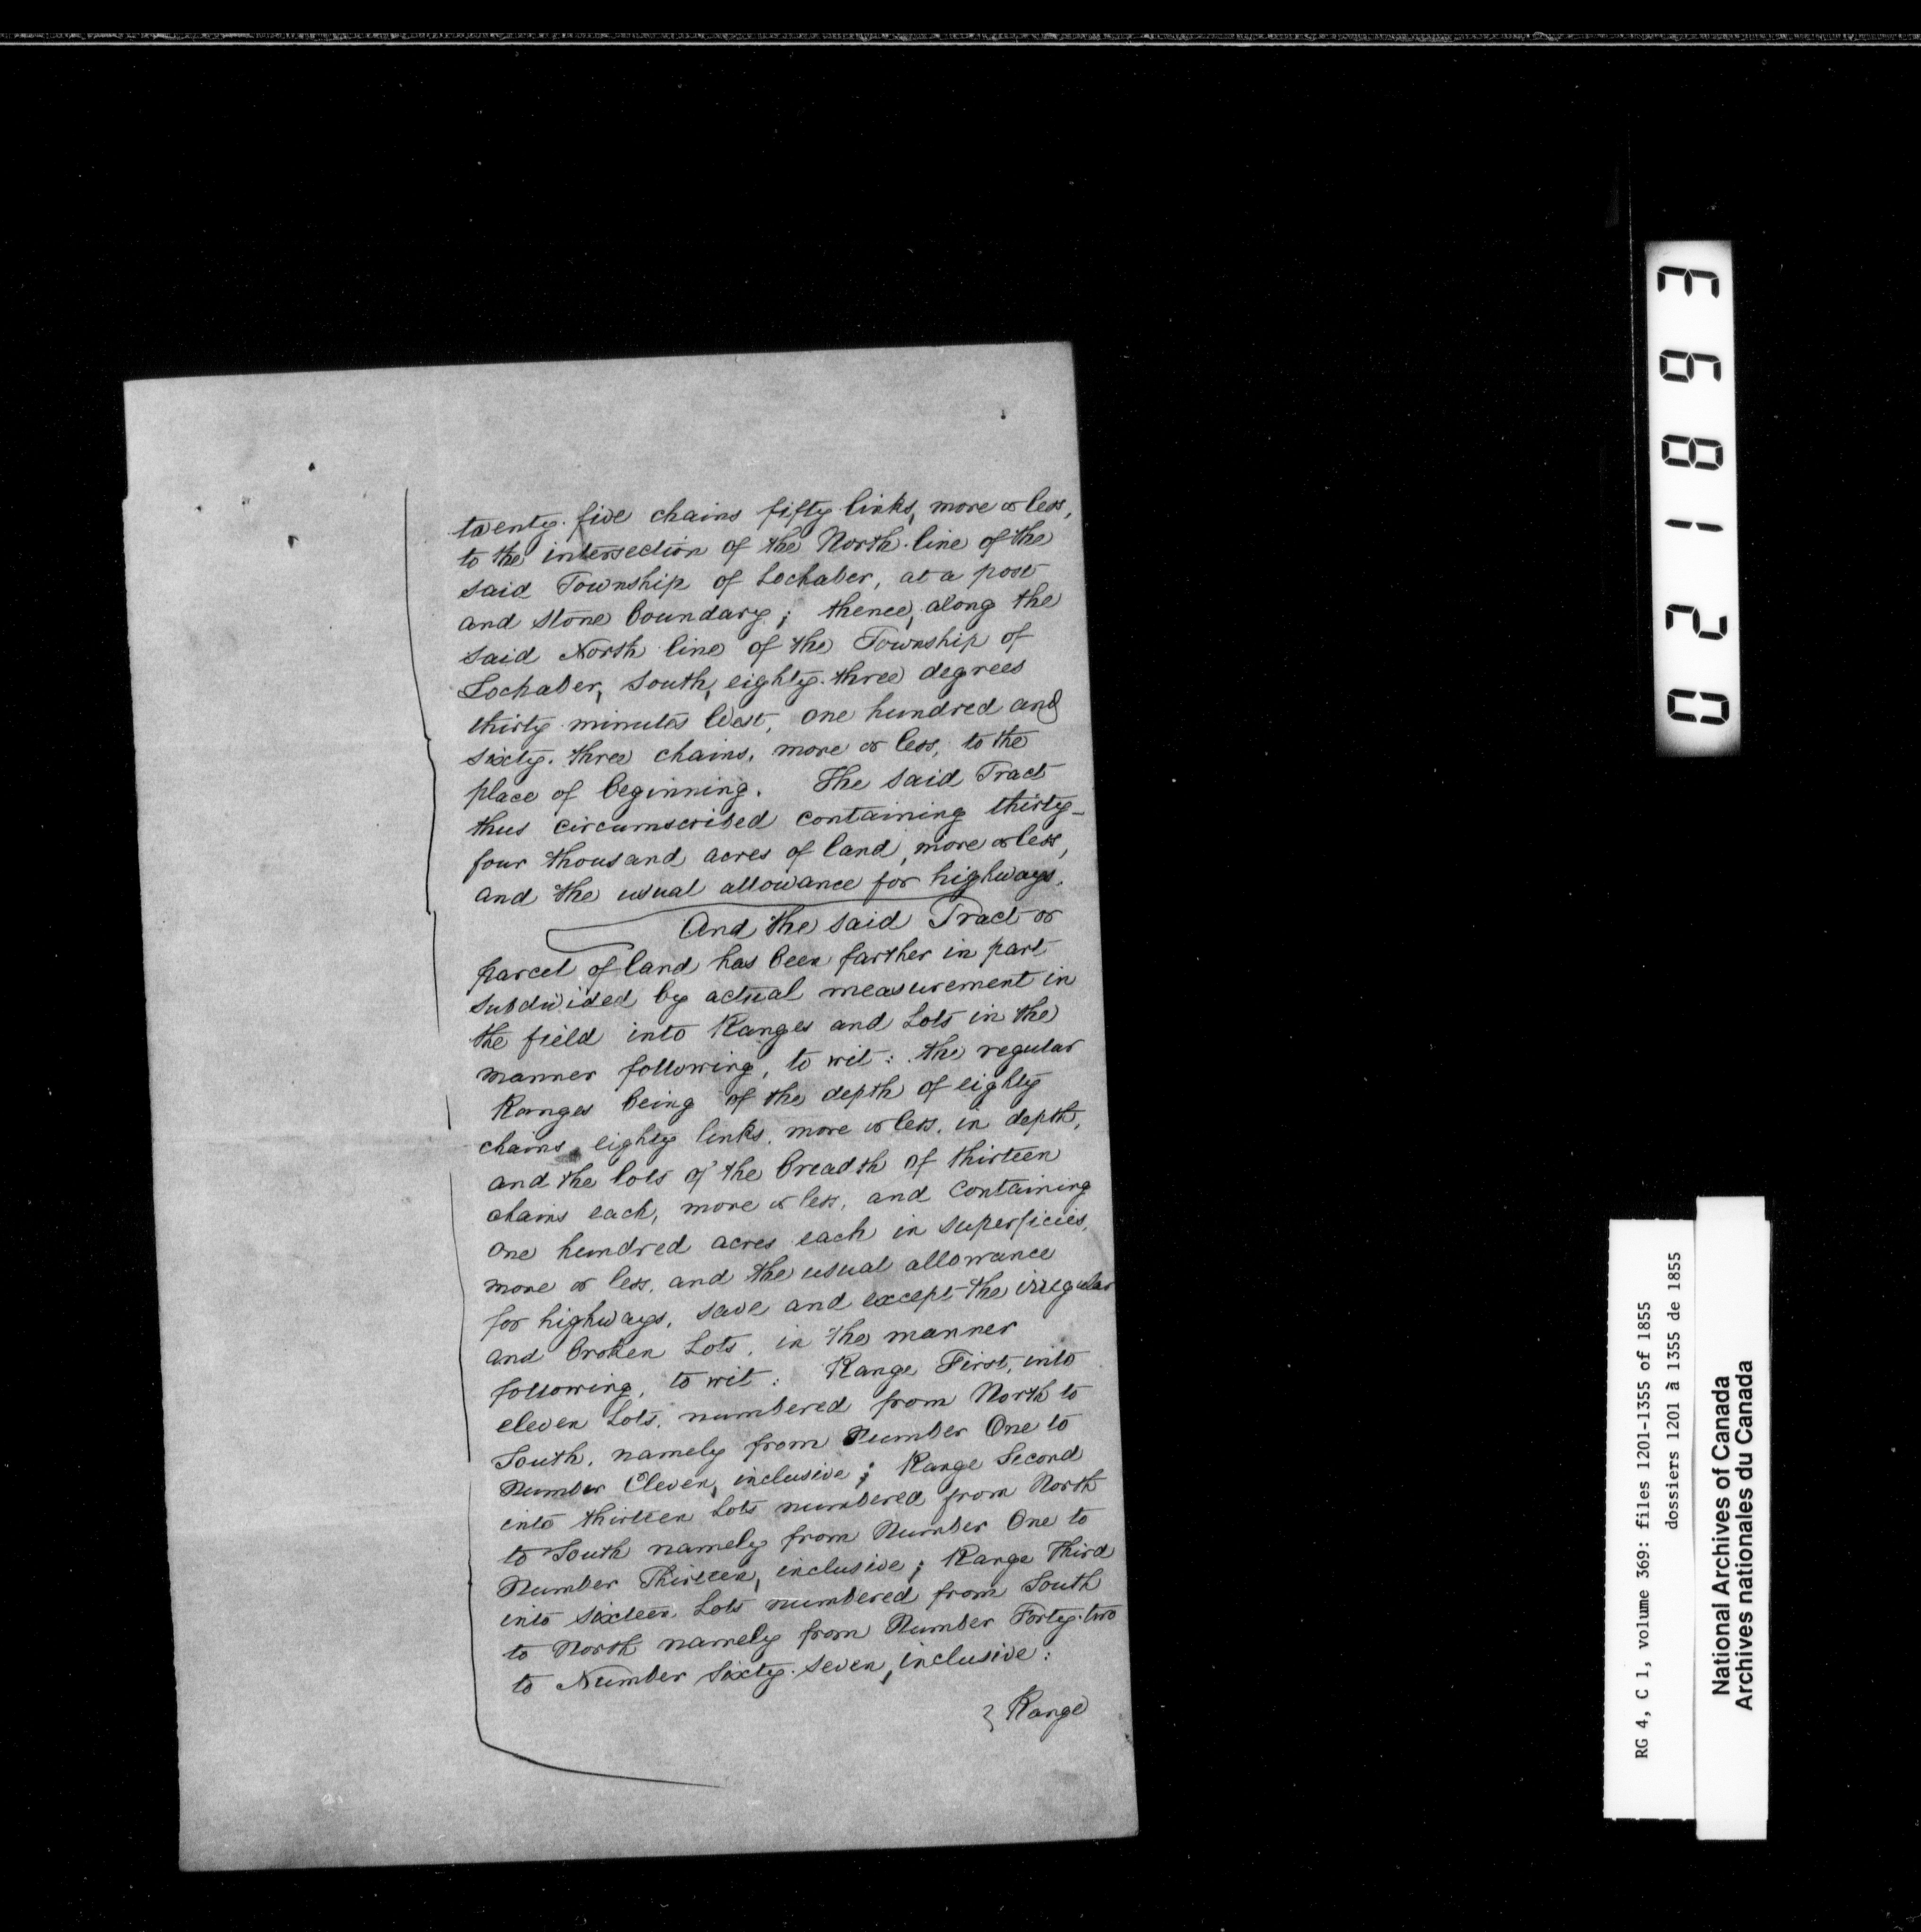 twenty-five chains fifty links, more or less,
to the intersection of the North line of the
said Township of Lochaber, at a post
and stone boundary; thence, along the
said North line of the Township of
Lochaber, South, eighty-three degrees
thirty minutes West, one hundred and
sixty-three chains, more or less, to the
place of beginning. The said Tract
thus circumscribed containing thirty-
four thousand acres of land, more or less,
and the usual allowance for highways.
And the said Tract or
parcel of land has been farther in part
subdivided by actual measurement in
the field into Ranges and Lots in the
manner following, to wit: the regular
Ranges being of the depth of eighty
chains eighty links, more or less, in depth,
and the lots of the breadth of thirteen
chains each, more or less, and containing
one hundred acres each in superficies,
more or less, and the usual allowance
for highways, save and except the irregular
and broken Lots, in the manner
following, to wit: Range First, into
eleven Lots, numbered from North to
South, namely from Number One to
Number Eleven, inclusive; Range Second
into thirteen Lots numbered from North
to South namely from Number One to
Number Thirteen, inclusive; Range Third
into sixteen Lots numbered from South
to North namely from Number Forty-two
to Number Sixty-seven, inclusive:
Range
021863
RG 4, C 1, volume 369: files 1201-1355 of 1855
dossiers 1201 à 1355 de 1855
National Archives of Canada
Archives nationales du Canada